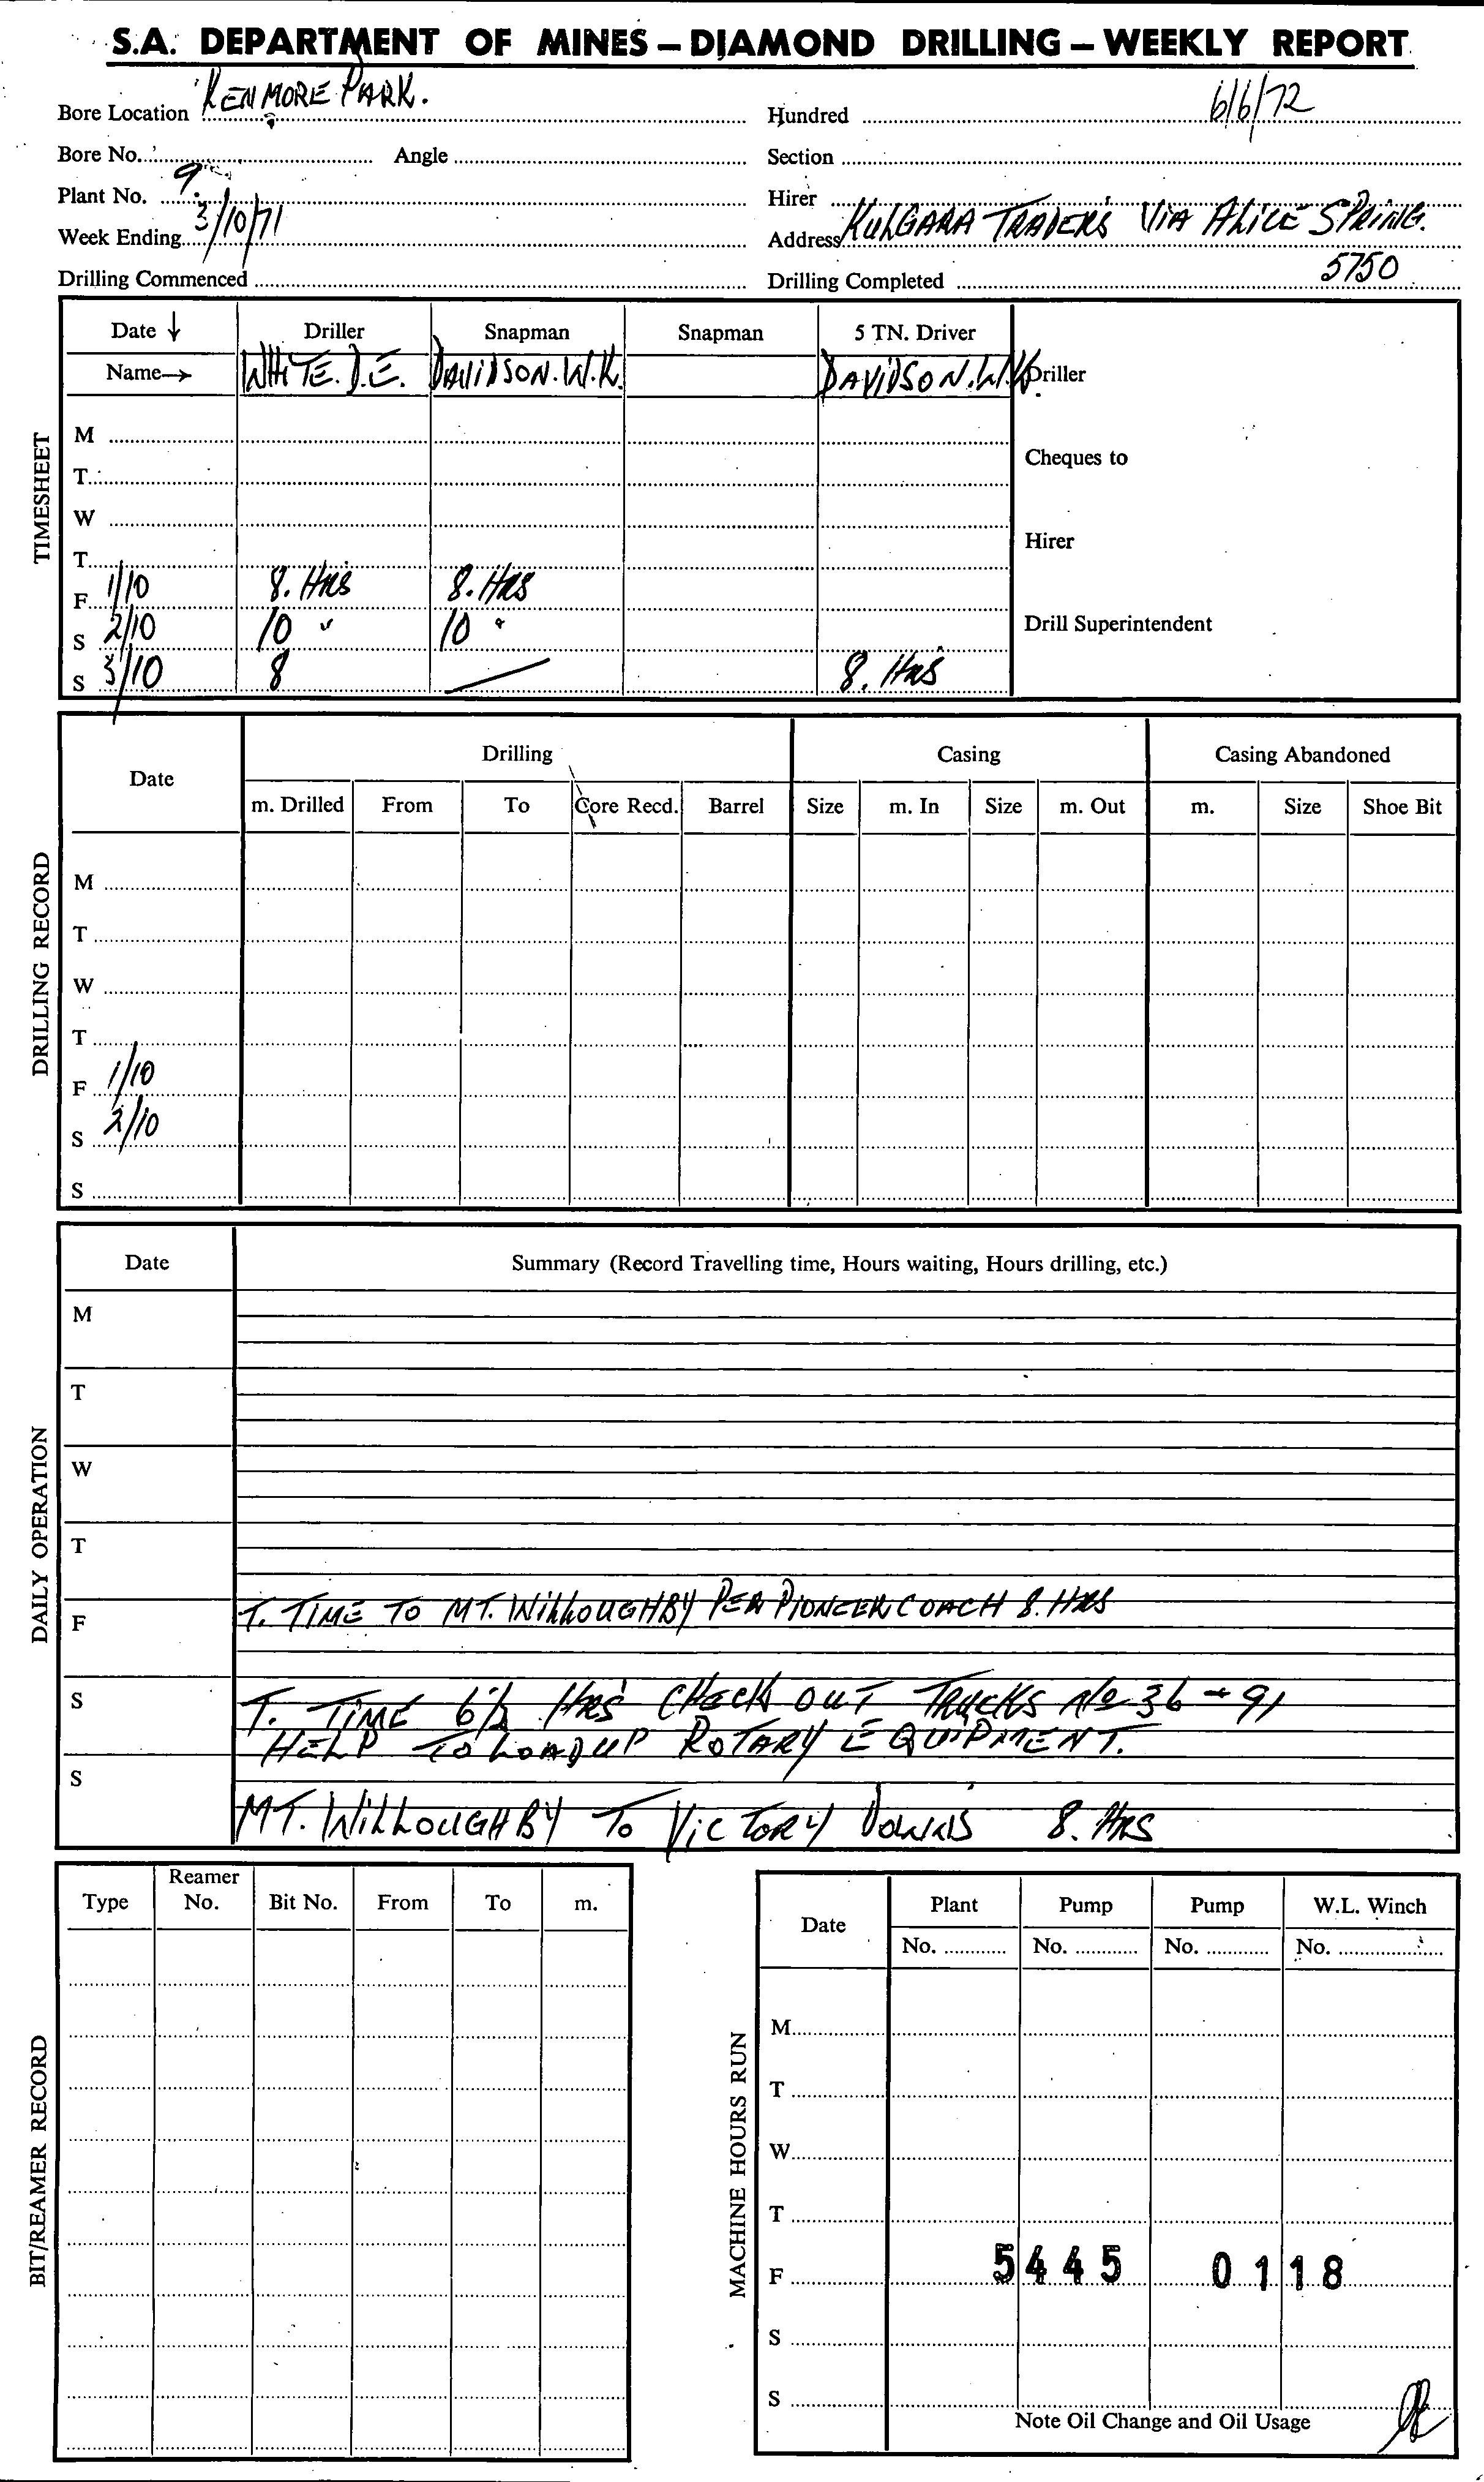 S.A. DEPARTMENT OF MINES – DIAMOND DRILLING – WEEKLY REPORT
Bore Location KENMORE PARK.
Hundred 6/6/72
Bore No. Angle
Section
Plant No. 9
Hirer
Week Ending 3/10/71
Address KULGARA TRADERS VIA ALICE SPRING.
Drilling Commenced
Drilling Completed 5750
TIMESHEET
Date ↓ Driller Snapman Snapman 5 TN. Driver
Name→ WHITE. D.E. DAVIDSON. W.K. DAVIDSON. W.K.
Driller
M
Cheques to
T
W
Hirer
T
F 1/10 8. HRS 8. HRS
S 2/10 10 " 10 "
Drill Superintendent
S 3/10 8 — 8. HRS
DRILLING RECORD
Date Drilling Casing Casing Abandoned
m. Drilled From To Core Recd. Barrel Size m. In Size m. Out m. Size Shoe Bit
M
T
W
T
F 1/10
S 2/10
S
DAILY OPERATION
Date Summary (Record Travelling time, Hours waiting, Hours drilling, etc.)
M
T
W
T
F T. TIME TO MT. WILLOUGHBY PER PIONEER COACH 8. HRS
S T. TIME 6½ HRS CHECK OUT TRUCKS No 36 → 91
HELP TO LOAD UP ROTARY EQUIPMENT.
S
MT. WILLOUGHBY TO VICTORY DOWNS 8. HRS
BIT/REAMER RECORD
Type Reamer No. Bit No. From To m.
MACHINE HOURS RUN
Date Plant Pump Pump W.L. Winch
No. No. No. No.
M
T
W
T
F 5445 0118
S
S
Note Oil Change and Oil Usage